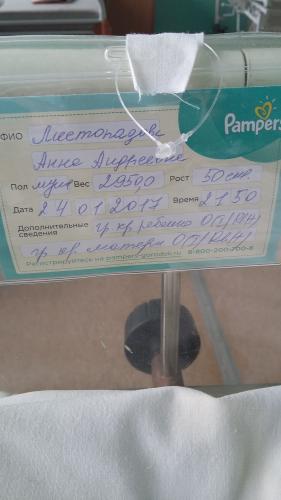 Pampers
ФИО
Анна Андреевна
Пол муж Вес 2950,0 Рост 50 см.
Дата 24 01 2017 Время 21 50
Дополнительные сведения гр. кр. ребенка 0(I) Rh(+)
гр. кр. матери 0(I) Rh(+)
Регистрируйтесь на pampers-gorodok.ru 8-800-200-700-8